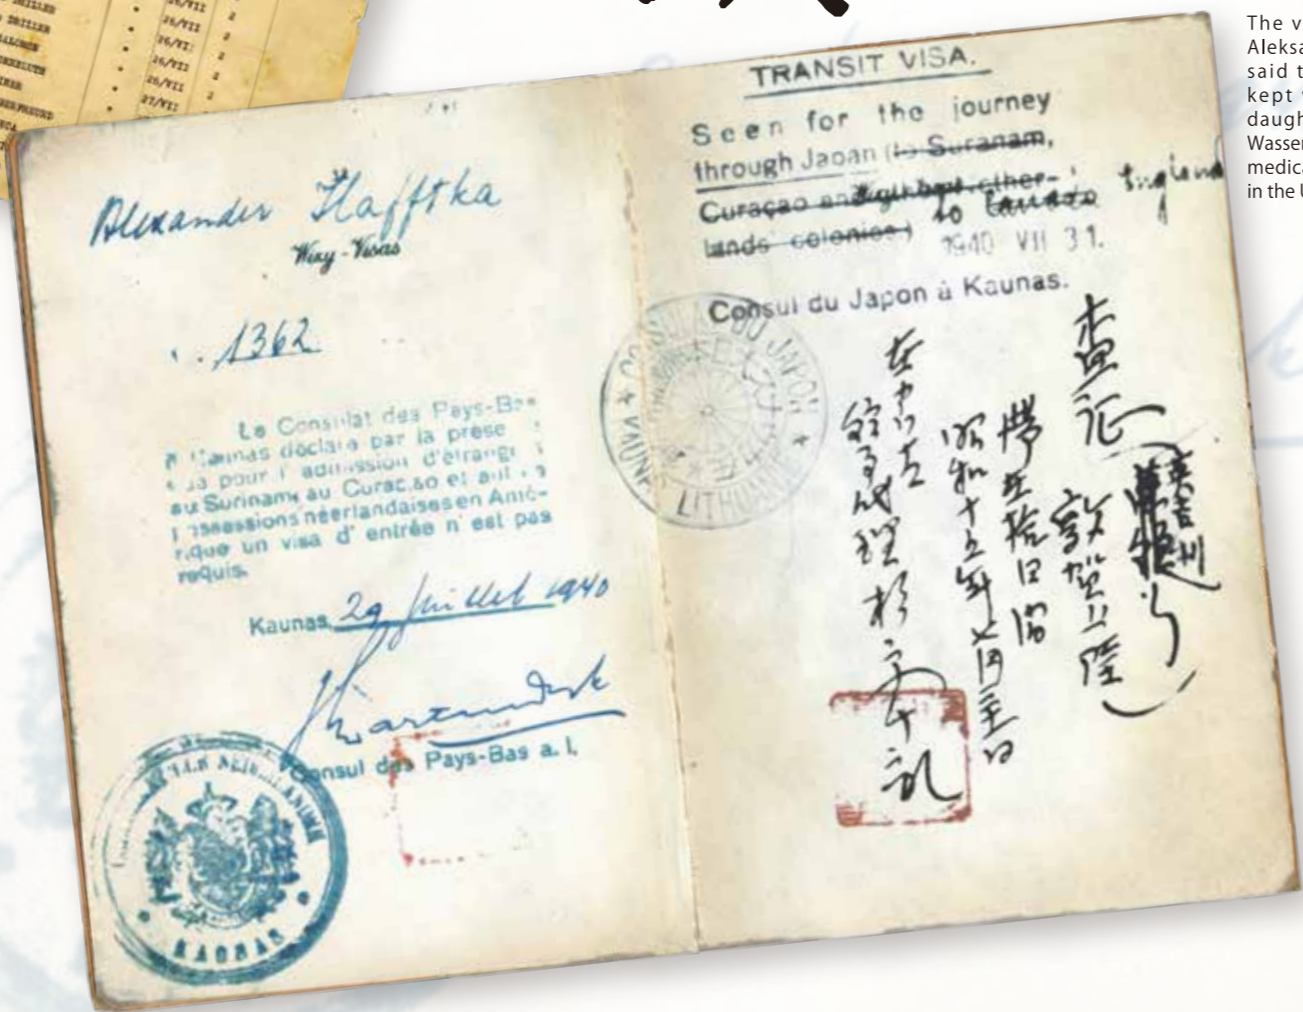 DRILLER
26/VII 2
26/VII 2
26/VII 2
27/VII
Alexander Hafftka
Wizy-Visas
1362
Le Consulat des Pays-Bas
à Kaunas déclare par la prese
pour l'admission d'étrang
au Surinam, au Curaçao et aut
possessions néerlandaises en Amé-
rique un visa d'entrée n'est pas
requis.
Kaunas, 29 Juillet 1940
Consul des Pays-Bas a. i.
KAUNAS
TRANSIT VISA.
Seen for the journey
through Japan (to Suranam,
Curaçao and other
lands' colonies) to Canada England
1940 VII 31.
Consul du Japon à Kaunas.
CONSULAT DU JAPON
KAUNAS LITHUANIE
査証
敦賀上陸
滞在拾日間
昭和十五年七月
領事代理 杉原千畝
The v
Aleksa
said t
kept
daugh
Wasser
medica
in the U